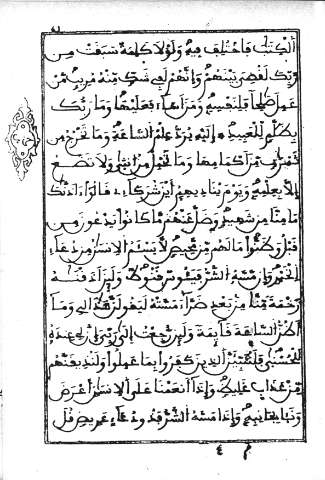 الكتب فاختلف فيه ولولا كلمة سبقت من
ربك لقضى بينهم وإنهم لفى شك منه مريب من
عمل صلحا فلنفسه ومن أساء فعليها وما ربك
بظلم للعبيد إليه يرد علم الساعة وما تخرج من
ثمرت من أكمامها وما تحمل من أنثى ولا تضع
إلا بعلمه ويوم يناديهم أين شركاءى قالوا ءاذنك
ما منا من شهيد وضل عنهم ما كانوا يدعون من
قبل وظنوا ما لهم من محيص لا يسئم الإنسن من دعاء
الخير وإن مسه الشر فيئوس قنوط ولئن أذقنه
رحمة منا من بعد ضراء مسته ليقولن هذا لى وما
أظن الساعة قائمة ولئن رجعت إلى ربى إن لى عنده
للحسنى فلننبئن الذين كفروا بما عملوا ولنذيقنهم
من عذاب غليظ وإذا أنعمنا على الإنسن أعرض
ونئا بجانبه وإذا مسه الشر فذو دعاء عريض قل
م ٤